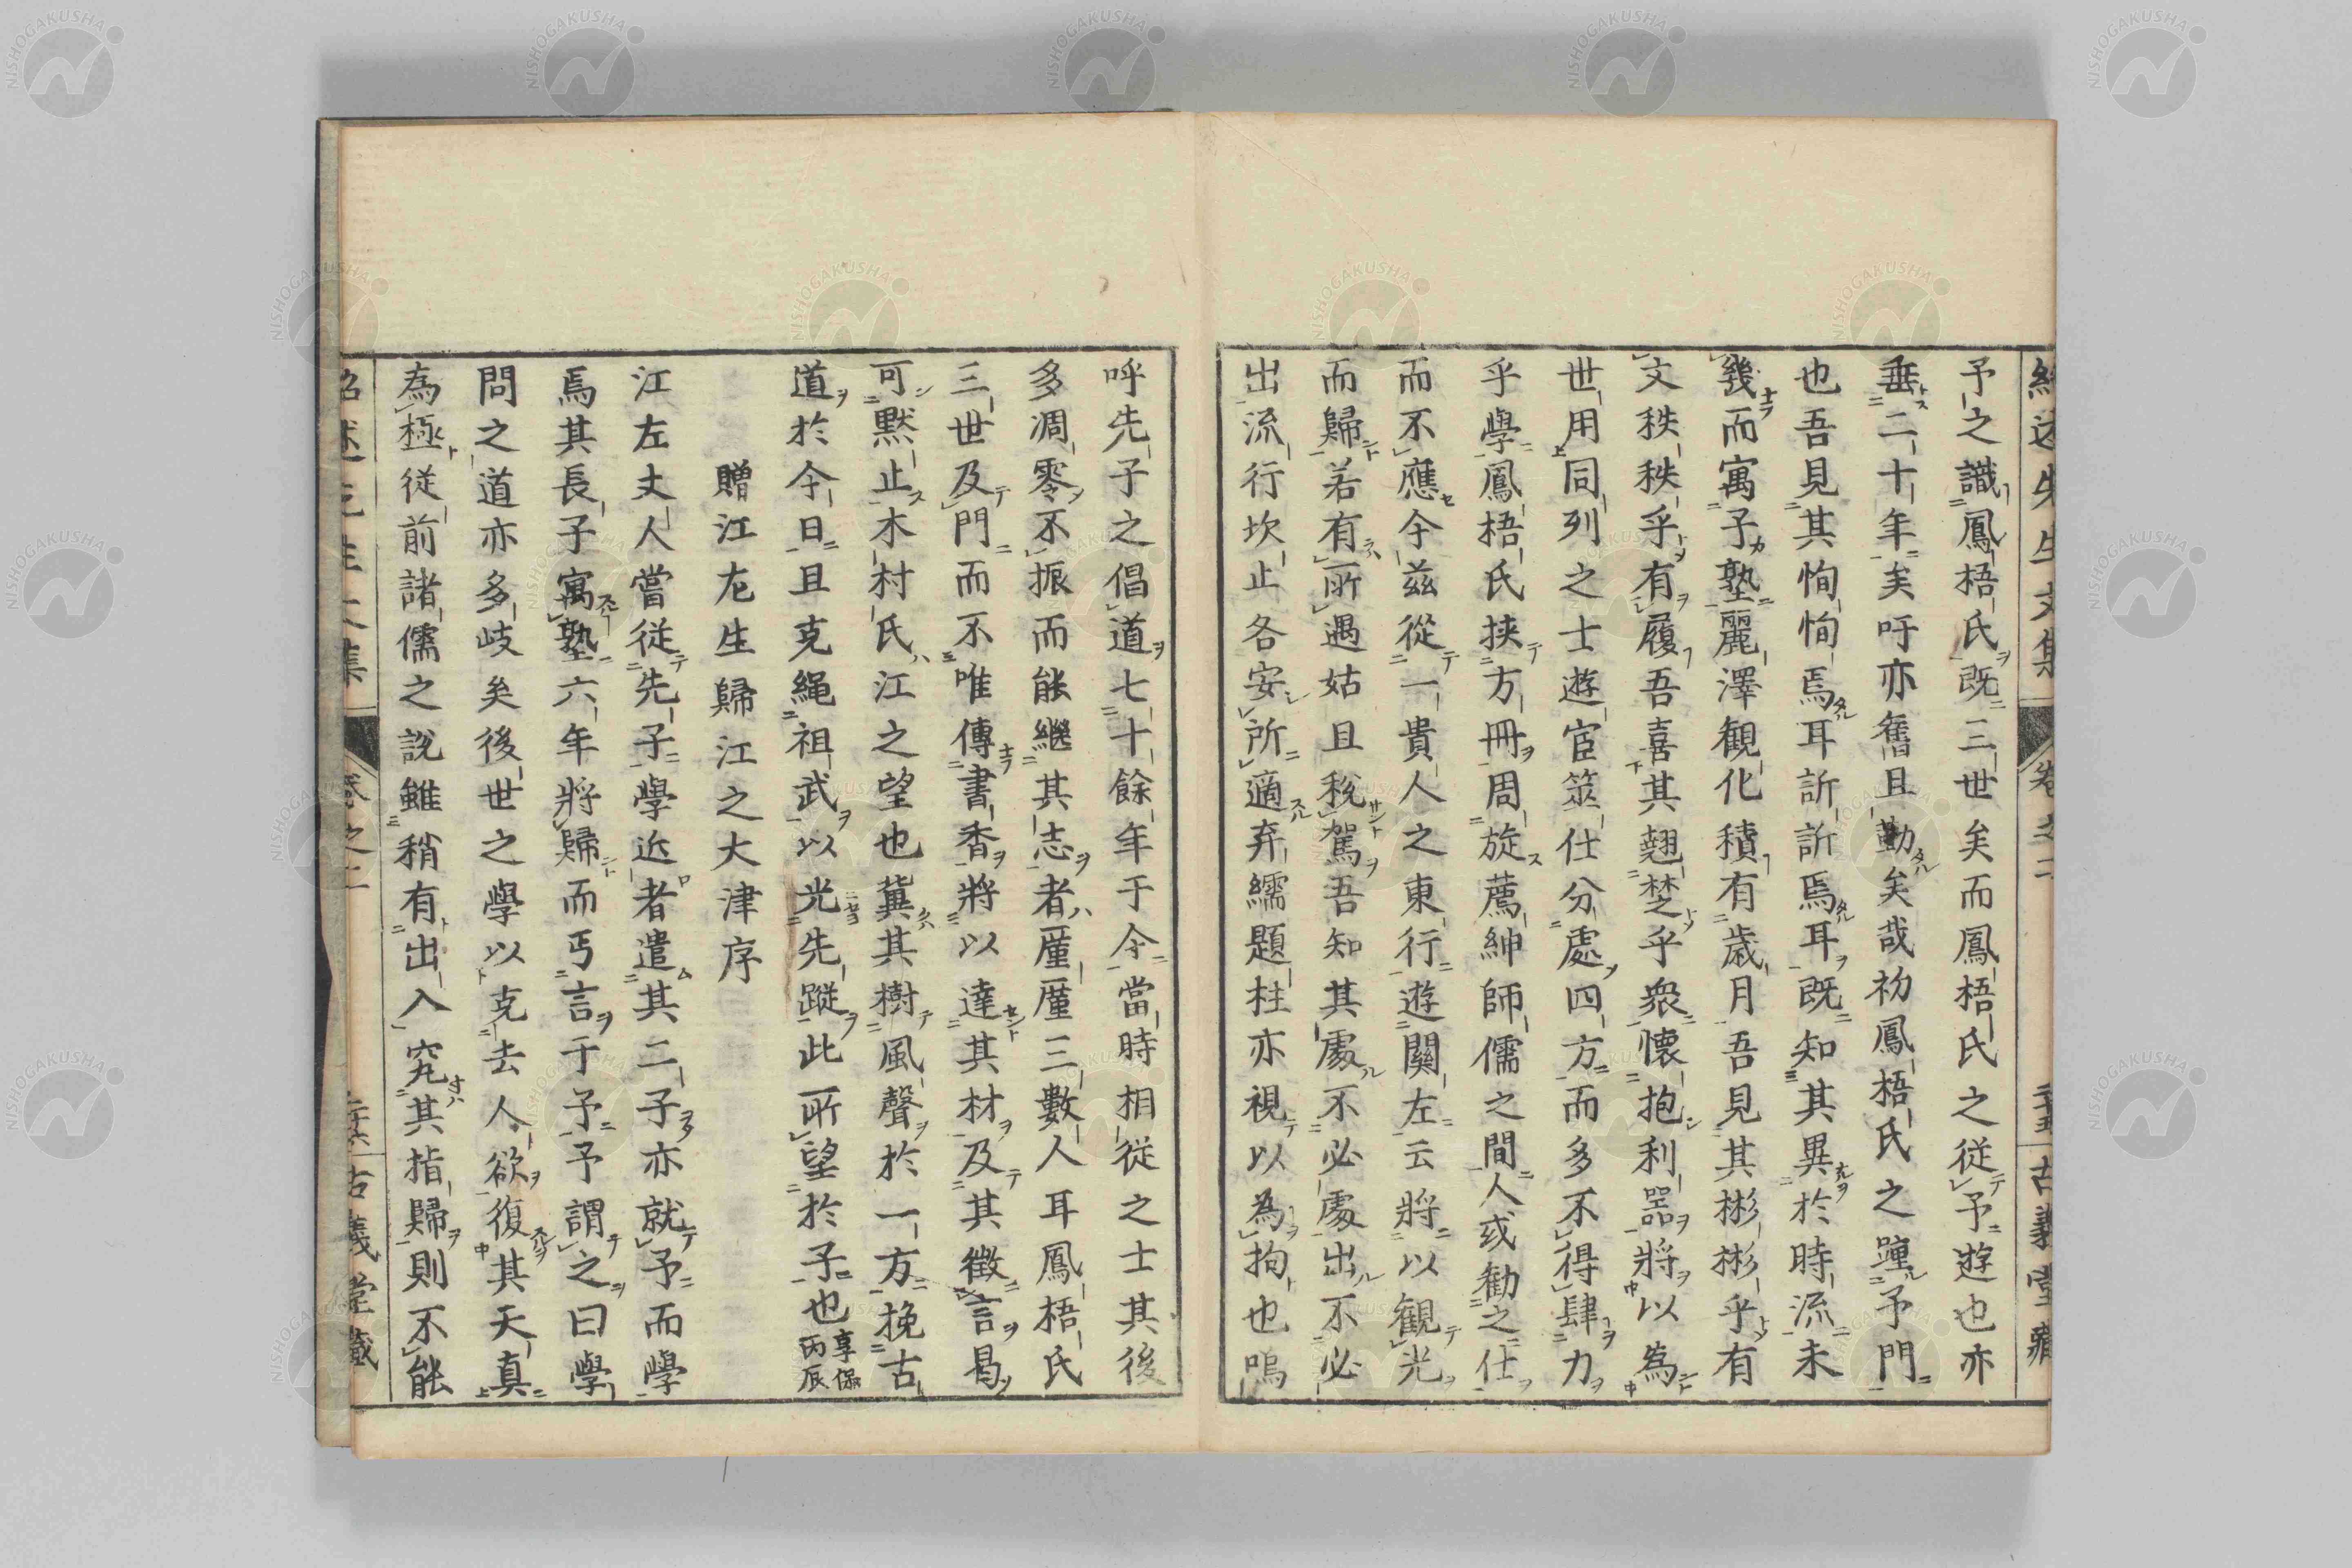 予之識鳳梧氏既三世矣而鳳梧氏之從予遊也亦
垂二十年矣吁亦舊且勤矣哉初鳳梧氏之踵予門
也吾見其恂恂焉耳訢訢焉耳既知其異於時流未
幾而寓予塾麗澤観化積有歳月吾見其彬彬乎有
文秩秩乎有履吾喜其翹楚乎衆懐抱利器將以為
世用同列之士遊宦筮仕分處四方而多不得肆力
乎學鳳梧氏挟方冊周旋薦紳師儒之間人或勧之仕
而不應今茲從一貴人之東行遊關左云將以観光
而歸若有所遇姑且稅駕吾知其處不必處出不必
出流行坎止各安所適弃繻題柱亦視以為拘也嗚
呼先子之倡道七十餘年于今當時相從之士其後
多凋零不振而能繼其志者厪厪三數人耳鳳梧氏
三世及門而不唯傳書香將以達其材及其徴言曷
可黙止木村氏江之望也冀其樹風聲於一方挽古
道於今日且克繩祖武以光先蹤此所望於子也享保丙辰
贈江左生歸江之大津序
江左丈人嘗従先子學近者遣其二子亦就予而學
焉其長子寓塾六年將歸而丐言于予予謂之曰學
問之道亦多岐矣後世之學以克去人欲復其天真
為極従前諸儒之説雖稍有出入究其指歸則不能
卷之二
古義堂藏